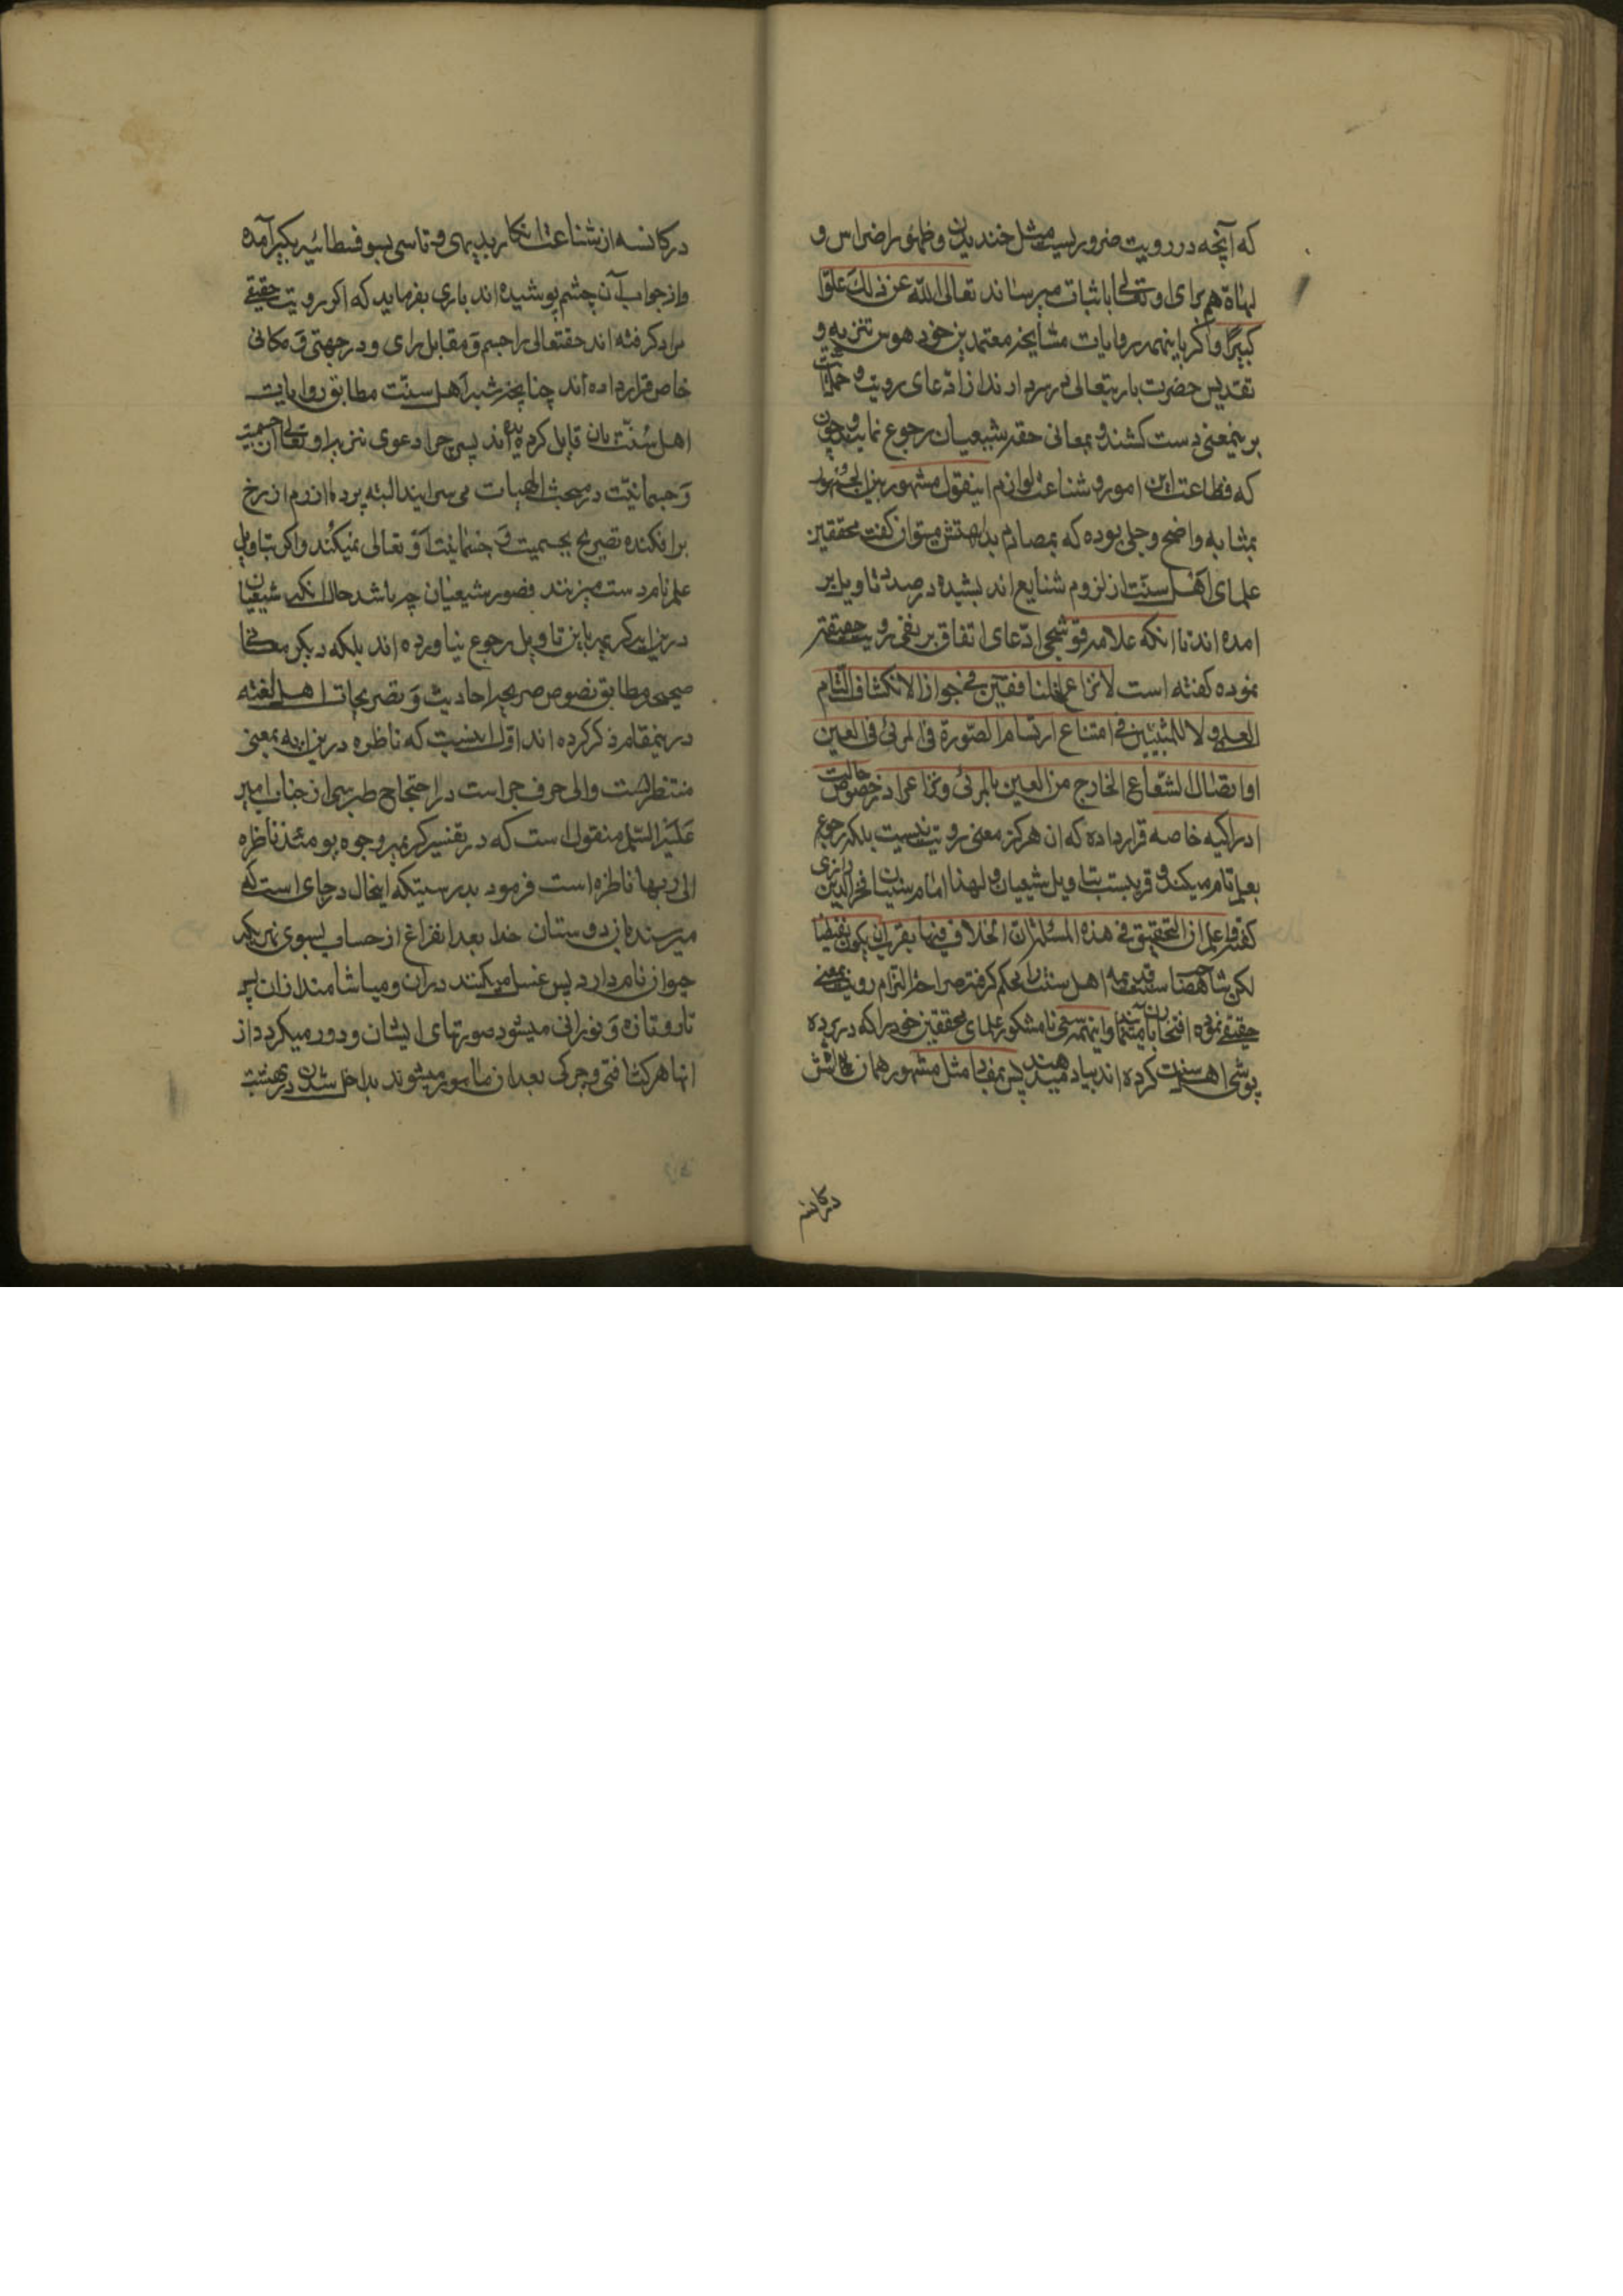 که آنچه در رویت ضروریست مثل خندیدن و ظهور اضراس و
لهاة هم برای او تعالی باثبات میرساند تعالی الله عن ذلك علوّا
کبیرًا و اگر باینهمه روایات مشایخ معتمدین خود هوس تنزیه و
تقدیس حضرت باریتعالی در سر دارند از ادّعای رویت و
برینمعنی دست کشند و بمعانی حقه شیعیان رجوع نمایند و چون
که فظاعت این امور و شناعت لوازم اینقول مشهور
بمثابه واضح و جلی بوده که بمصادم بداهتش میتوان گفت محققین
علمای اهل سنّت از لزوم شنایع اندیشیده در صدد تاویل بر
امده اند تا انکه علامه قوشجی ادّعای اتفاق بر نفی رویت حقیقة
نموده گفته است لا نزاع للنافین فی جواز الانکشاف التام
العلمی و لا للمثبتین فی امتناع ارتسام الصّورة فی المرئی فی العین
او اتصال الشّعاع الخارج من العین بالمرئی و نزاع را در خصوص حالت
ادراکیه خاصه قرار داده که ان هرگز معنی رویت نیست بلکه رجوع
بعلم تام میکند و قریبست بتاویل شیعیان و لهذا امام سنیان فخر الدین رازی
گفته و اعلم ان التحقیق فی هذه المسئلة ان الخلاف فیها یقرب ان یکون لفظیا
لکن شاهصاحب اهل سنت را محکم گرفته صراحة التزام رویت بمعنی
حقیقی نموده افتخار بان مینمایند و اینهمه سعی نا مشکور علمای محققین خود را که در پرده
پوشی اهل سنت کرده اند بباد میدهند پس بمفاد مثل مشهور همان
درکاسه
درکاسه از شناعت انکار بدیهی و تاسی بسوفسطائیه بکیر آمده
و از جواب آن چشم پوشیده اند باری بفرماید که اکر رویت حقیقی
مراد کرفته اند حقتعالی را جسم و مقابل رای و در جهتی و مکانی
خاص قرار داده اند چنانچه شبر اهل سنّت مطابق روایات
اهل سُنّت بان قایل کردیده اند پس چرا دعوی تنزیه او تعالی از جسمیت
وَ جسمانیّت در مبحث الهیات می سرایند البته پرده ازرم از رخ
برافکنده تصریح بجسمیت وَ جسمانیت او تعالی نمیکنند و اکر بتاویل
علم تام دست میزنند قصور شیعیان چه باشد حال انکه شیعیان
درین ایه کریمه باین تاویل رجوع نیاورده اند بلکه دیکر معانی
صحیحه مطابق نصوص صریحه احادیث وَ تصریحات اهل لغته
درینمقام ذکر کرده اند اوّل اینست که ناظره درین ایه بمعنی
منتظر است و الی حرف جر است در احتجاج طبرسی از جناب امیر
عَلَیْه السّلم منقول است که در تفسیر کریمه وجوه یومئذ ناظره
الی ربها ناظره است فرمود بدرستیکه اینحال در جای است که
میرسند دران دوستان خدا بعد انفراغ از حساب بسوی نهریکه
حیوان نام دارد پس غسل میکنند دران و میاشامند ازان پس
تازه وَ نورانی میشود صورتهای ایشان و دور میکردد از
انها هر کثافتی و چرکی بعد ازان مامور میشوند بداخل شدن در بهشت